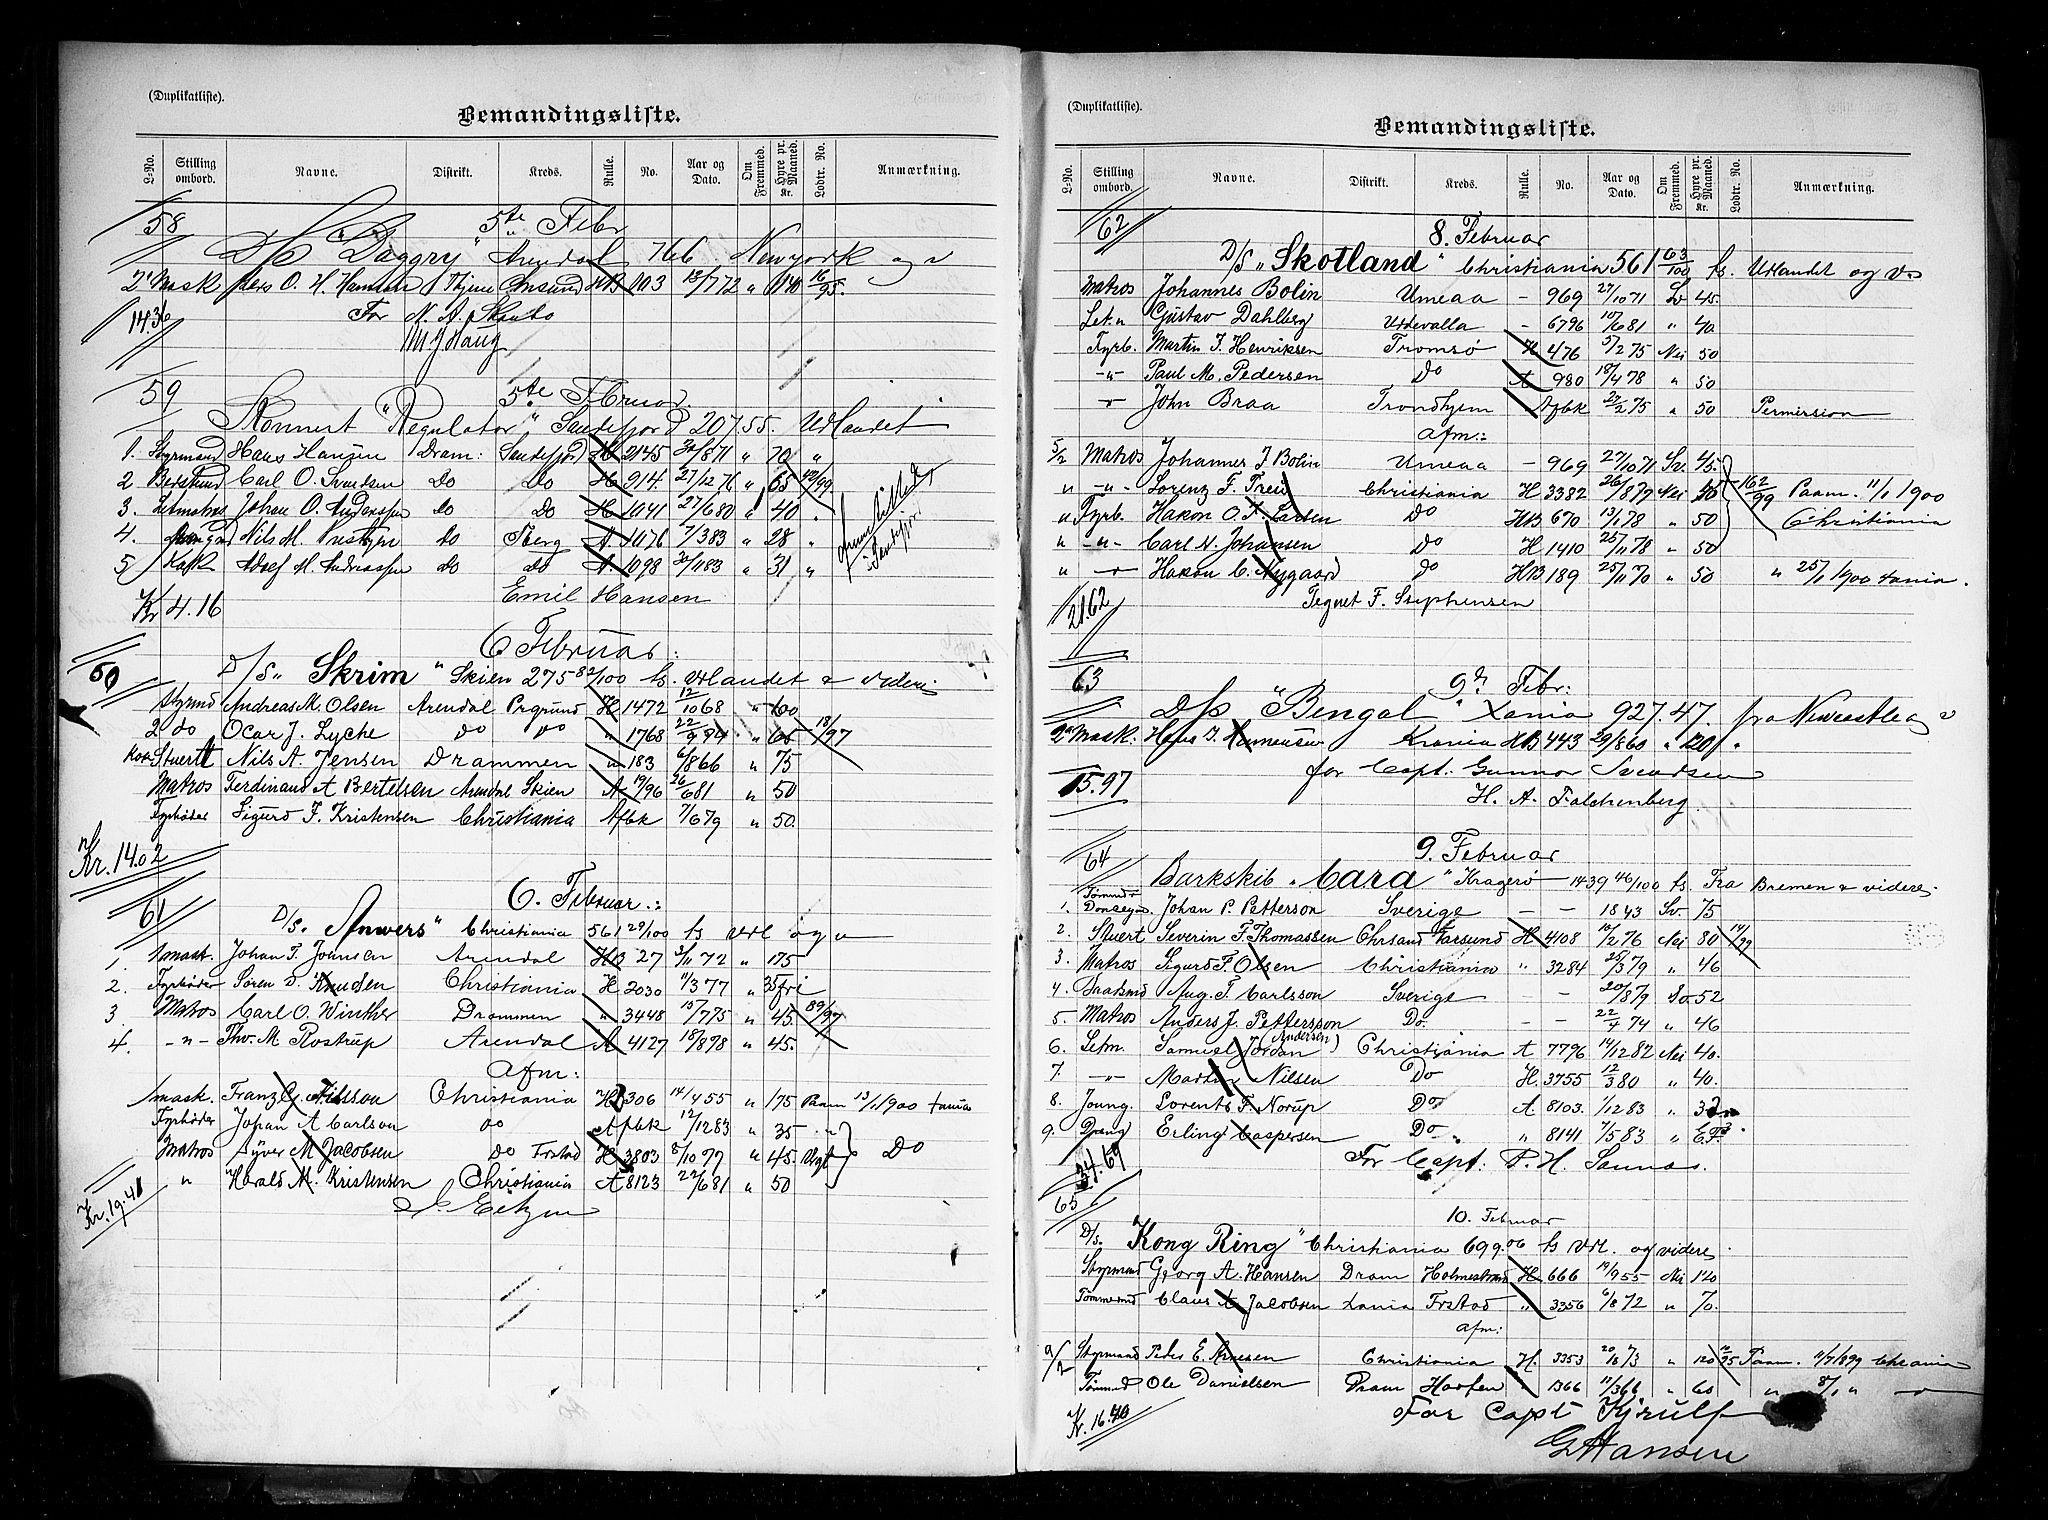 (Duplikatliste).
Bemandingsliste.
L-No. Stilling ombord. Navne. Distrikt. Kreds. Rulle. No. Aar og Dato. Om Fremmed. Hyre pr. Maaned. Kr. Lodtr. No. Anmærkning.
58 5te Febr
"Daggry" Arendal 766 Newyork
2' Mask H. Hansen Thjme HB 103 13/7 72 " 140 16/95.
For N. A. Skaubo
1436
59 5te Februar
"Regulator" Sandefjord 207.55. Udlandet
1. Styrmand Hans Hansen Dram: Sandefjord H 2145 30/8 71 " 70 "
2 Carl O. Do Do H 914 21/12 76 " 65 42/99
3. Letmatros Johan O. Anderssen Do Do H 1041 27/6 80 " 40 "
4. Nils M. Do Tberg A 1076 7/3 83 " 28 "
5 Kokk Adolf M. Andreassen Do do A 1098 30/11 83 " 31 "
Emil Hansen
Kr 4.16
6 Februar:
60 D/S "Skrim" Skien 275 82/100 ts. Udlandet & videre
Styrmd Andreas M. Olsen Arendal Prgrund H 1472 12/10 68 " 60
2 do Ocar J. Lyche do do " 1768 22/9 94 " 65 18/97
Kok Stuert Nils A. Jensen Drammen " 183 6/8 66 " 75
Matros Ferdinand A Bertelsen Arendal Skien A 19/96 26/6 81 " 50
Fyrbøder Sigurd F. Kristensen Christiania Afbk 7/6 79 " 50.
Kr. 14.02
6. Februar.:
61 D/S. "Anvers" Christiania 561 29/100 ts Udl og v
1. 1 mask. Johan T. Johnsen Arendal HB 27 3/11 72 " 175
2. Fyrbøder Søren D. Knudsen Christiania H 2030 11/3 77 " 35 fri
3 Matros Carl O. Winther Drammen " 3448 15/7 75 " 45. 89/97
4. -"- Thv. M. Rostrup Arendal A 4127 18/8 78 " 45.
Afm:
1 mask. Franz G. Nilsson Christiania HB 306 14/4 55 " 175 Paam 13/1 1900 Xania
Fyrbøder Johan A Carlson do Afbk 12/12 83 " 35 "
Matros Syver M Jacobsen Do Frstad H 3803 8/10 77 " 45. Do
" Harald M. Kristensen Christiania A 8123 22/6 81 " 50
Kr. 19.41
(Duplikatliste).
Bemandingsliste.
L-No. Stilling ombord. Navne. Distrikt. Kreds. Rulle. No. Aar og Dato. Om Fremmed. Hyre pr. Maaned. Kr. Lodtr. No. Anmærkning.
62 8. Februar
D/S "Skotland" Christiania 561 63/100 ts. Udlandet og v
Matros Johannes Bolin Umeaa - 969 27/10 71 Sv 45.
Let. " Gustav Dahlberg Uddevalla - 6796 10/6 81 " 40
Fyrb. Martin J. Henriksen Tromsø H 476 5/2 75 Nei 50
-"- Paul M. Pedersen Do A 980 18/4 78 " 50
" John Braa Trondhjem Afbk 27/2 75 " 50 Permission
Afm.:
5/2 Matros Johannes J Bolin Umeaa - 969 27/10 71 Sv. 45.
" -"- Lorenz F. Christiania H 3382 26/8 79 Nei 162/99 Paam. 11/1 1900
" Fyrb. Hakon O. A. Larsen Do HB 670 13/1 78 " 50 Christiania
" -"- Carl N. Johansen Do H 1410 25/11 78 " 50
" " Hakon C. Nygaard do HB 189 25/11 70 " 50 " 25/1 1900 Xania.
Tegnet F. Stephensen
21.62
63 9de Febr:
D/S "Bengal" Xania 927.47. fra Newcastle
2" Mask: Hans J. Krania HB 443 29/8 60 " 120 "
for Capt: Gunnar Svendsen
H. A. Falchenberg.
15.97
9. Februar
64 Barkskib "Cara" Kragerø 1439 46/100 ts. Fra Bremen & videre.
1. Tømmdr Donkeym. Johan P. Petterson Sverige - - 1843 Sv. 75
2. Stuert Severin F. Thomassen Chrsand Farsund H 4108 10/2 76 Nei 80 14/99
3. Matros Sigurd F. Olsen Christiania " 3284 25/3 79 " 46
4. Baadsmd Aug. F. Carlsson Sverige - - 20/8 79 Sv. 52
5. Matros Anders J. Pettersson Do. - - 22/4 74 " 46
6. Letm. Samuel Jordan (Andersen) Christiania A 7796 14/12 82 Nei 40.
7. -"- Martin Nilsen Do H. 3755 12/3 80 " 40.
8. Joung. Lorents F. Norup Do A. 8103 1/12 83 "
9. Dreng Erling Caspersen Do " 8141 7/5 83 "
For Capt: P. H. Sannæs.
34.69
65 10. Februar
D/S. "Kong Ring" Christiania 699.06 ts Udl. og videre
Styrmand Georg A. Hansen Dram Holmestrand H 666 19/9 55 Nei 120
Tømmermd Claus A. Jacobsen Xania Frstad " 3356 6/8 72 " 70.
Afm:
9/2 Styrmand Peder E. Arnesen Christiania H. 3353 20/8 73 " 120 12/95 Paam. 11/7 1899 Chrania
Tømmd Ole Danielsen Dram " 1366 11/3 66 " 60 " 8/1 "
For Capt Kjrulf
G Hansen
Kr. 16.40